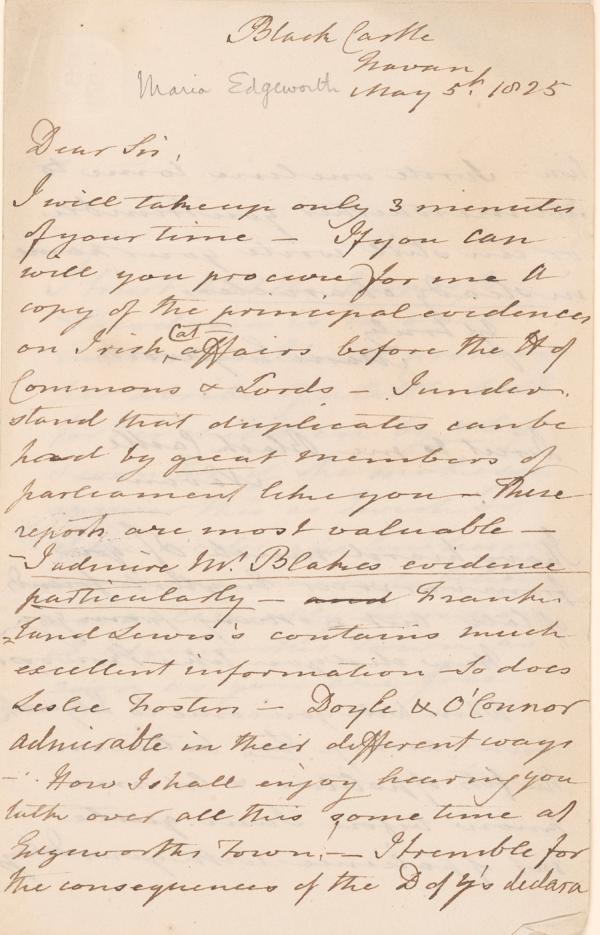 Black Castle
Navan
Maria Edgeworth May 5th. 1825
Dear Sir,
I will take up only 3 minutes
of your time — If you can
will you procure for me a
copy of the principal evidences
on Irish, Cat- affairs before the H of
Commons & Lords — I under.
stand that duplicates can be
had by great members of
parliament like you — These
reports are most valuable —
— I admire Mr. Blakes evidence
particularly — and Frank
land Lewis's contains much
excellent information — So does
Leslie Fosters — Doyle & O'Connor
admirable in their different ways
— How I shall enjoy hearing you
talk over all this some time at
Edgeworths Town. — I tremble for
the consequences of the D of Y's declara